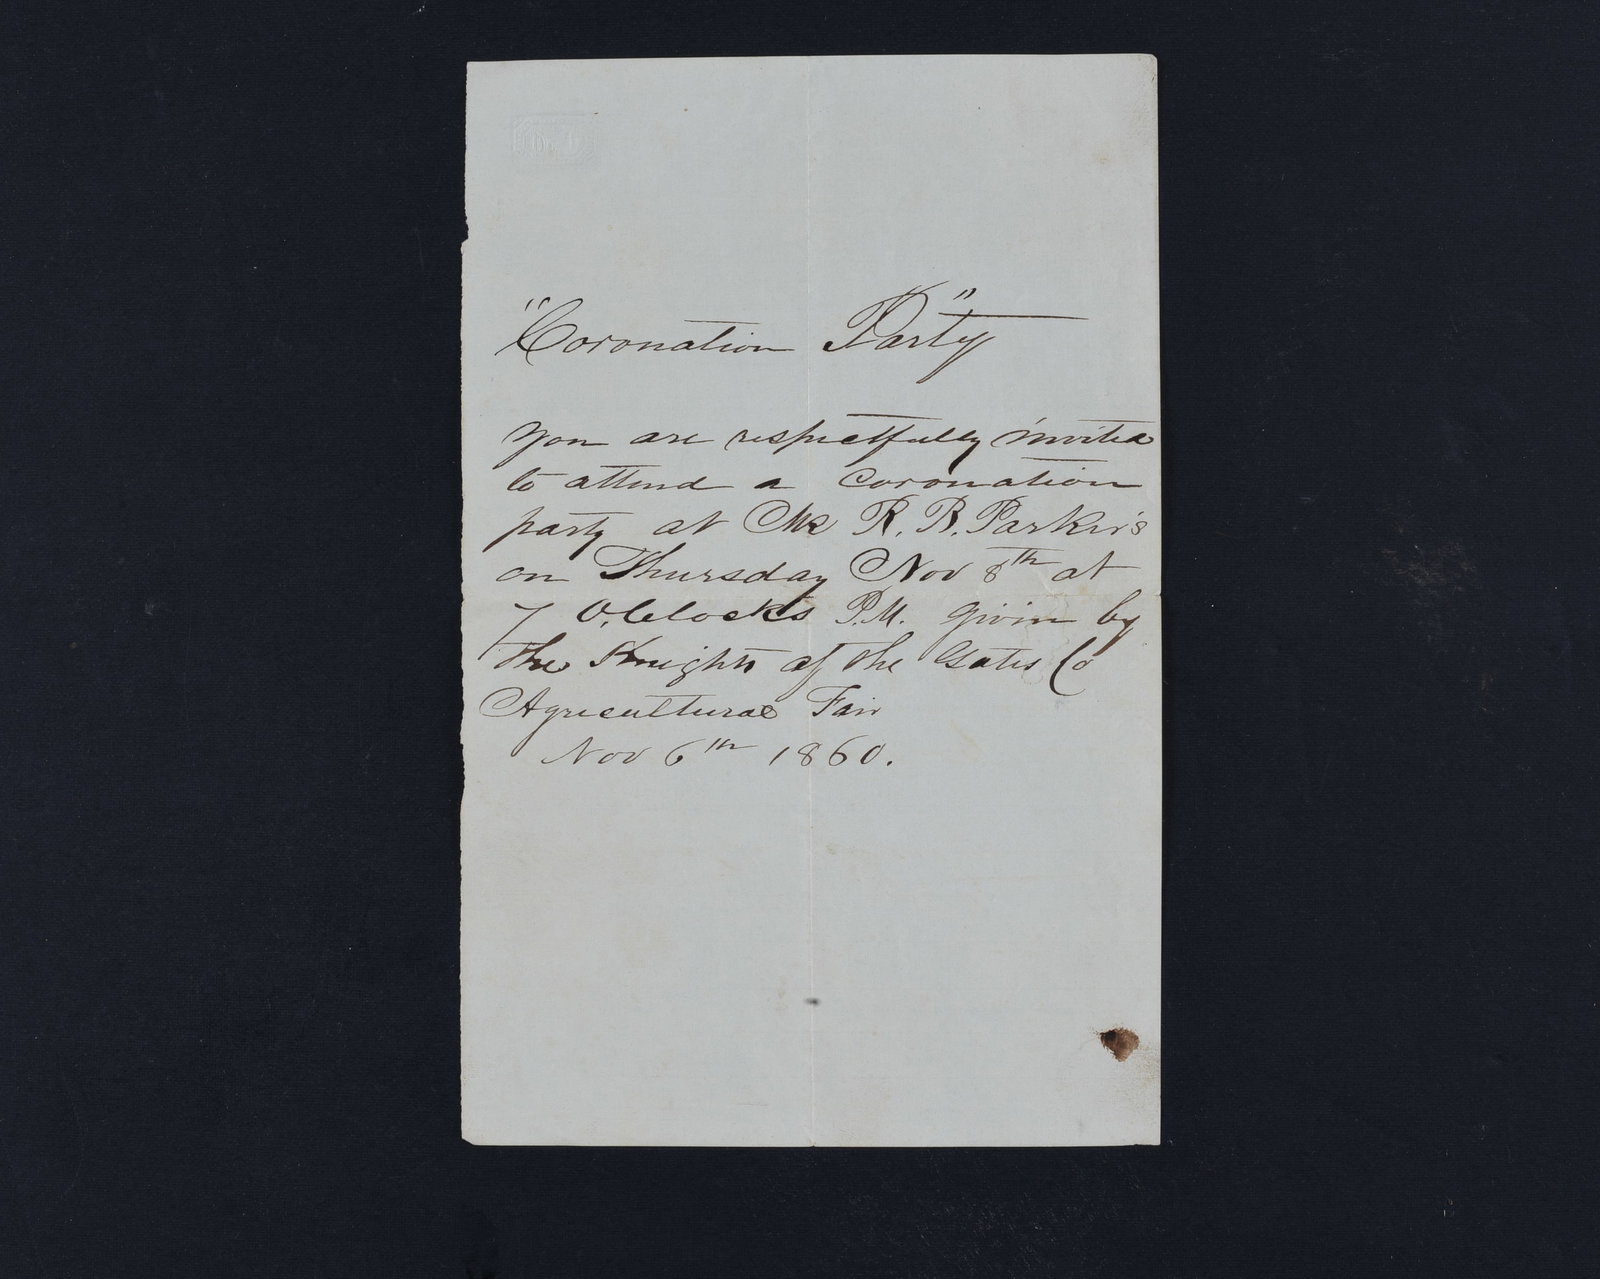 "Coronation Party"
You are respectfully invited
to attend a Coronation
party at Mr R. B. Parker's
on Thursday Nov 8th at
7 O,Clocks P.M. given by
the Knights of the Gates Co
Agricultural Fair
Nov 6th 1860.